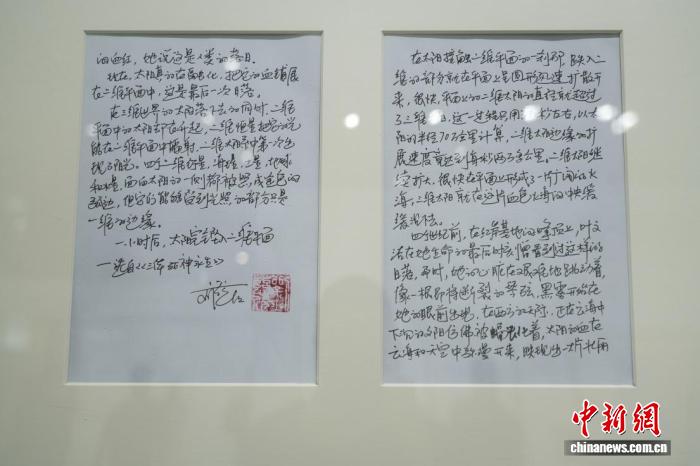 在太阳接触二维平面的一刹那，跌入二
维的部分就在平面上呈圆形迅速扩散开
来，很快，平面上的二维太阳的直径就超过
了三维太阳，这一过程只用了30秒左右，以太
阳的半径70万公里计算，二维太阳边缘的扩
展速度竟达到每秒两万多公里。二维太阳继
续扩大，很快在平面上形成了一片广阔的火
海，三维太阳就在这片血色火海的中央缓
缓沉下去。
四个世纪前，在红岸基地的峰顶上，叶文
洁在她生命的最后时刻曾看到过这样的
日落，那时，她的心脏在艰难地跳动着，
像一根即将断裂的琴弦，黑雾开始在
她的眼前出现，在西方的天际，正在云海中
下沉的夕阳仿佛被熔化着，太阳的血在
云海和天空中弥漫开来，映现出一大片壮丽
的血红，她说这是人类的落日。
现在，太阳真的在熔化，把它的血铺展
在二维平面中，这是最后一次日落。
在三维世界的太阳落下去的同时，二维
平面中的太阳却在升起，二维恒星把它的光
能在二维平面中辐射，二维太阳系中第一次出
现了阳光。四个二维行星，海王星、土星、地球
和火星，面向太阳的一侧都被照成金色的
弧边，但它们能够受到光照的部分只是
一维的边缘。
一小时后，太阳完全跌入二维平面
—选自《三体·死神永生》
刘慈欣
中新网
www.chinanews.com.cn